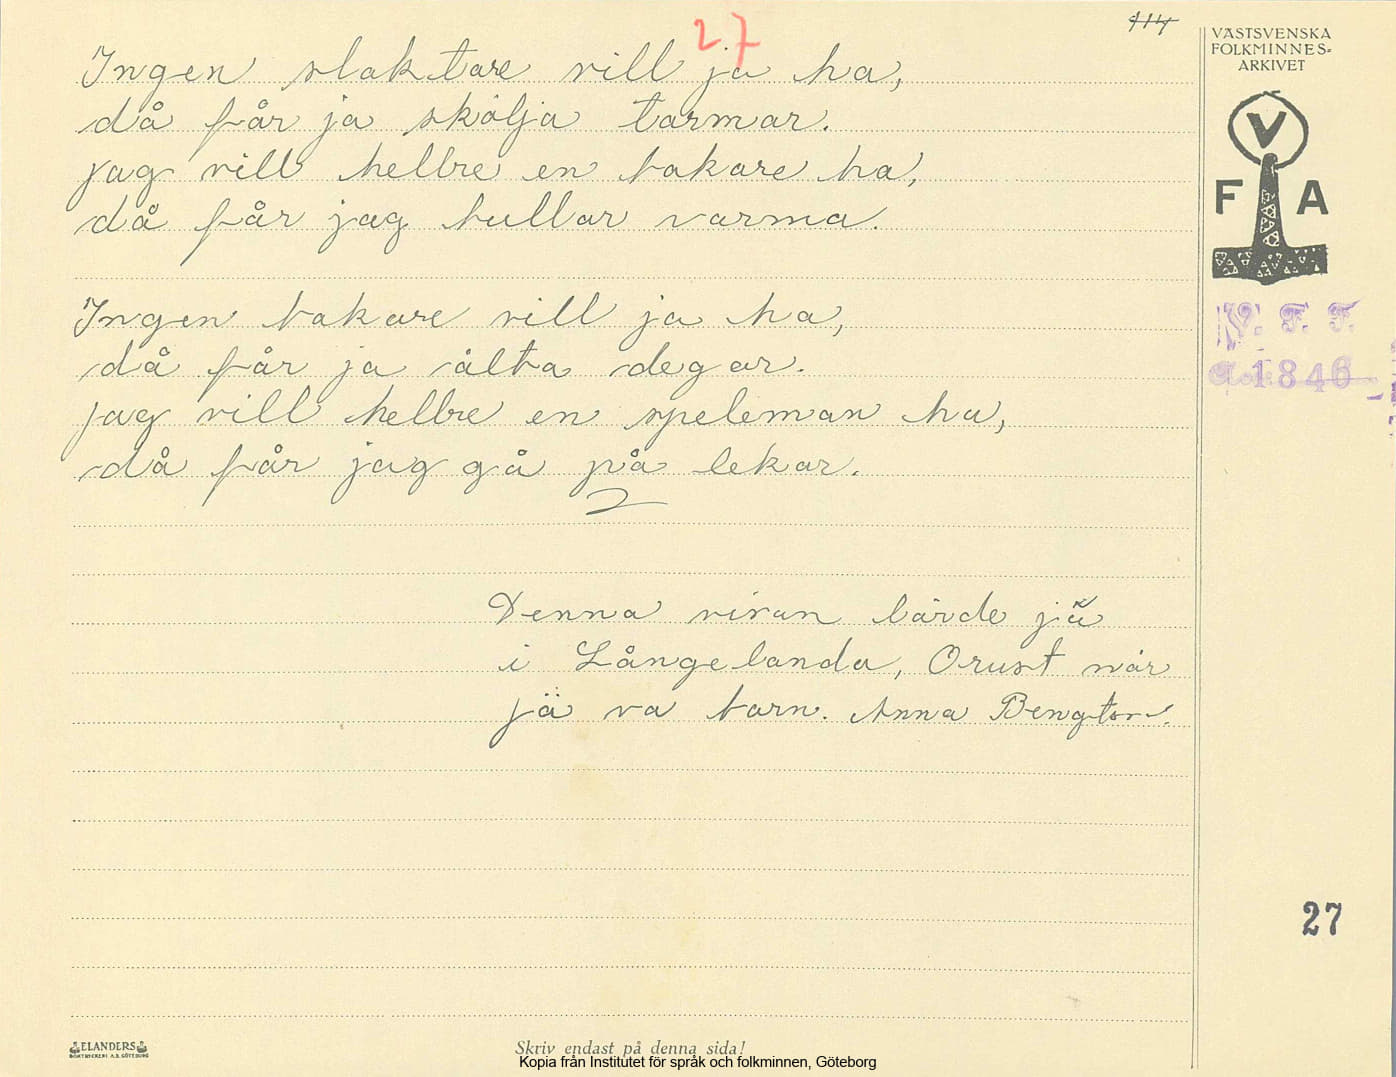 27
114
Ingen slaktare vill ja ha,
då får ja skölja tarmar.
jag vill hellre en bakare ha,
då får jag bullar varma.
Ingen bakare vill ja ha,
då får ja älta degar.
jag vill hellre en speleman ha,
då får jag gå på lekar.
Denna visan lärde jä
i Långelanda, Orust när
jä va barn. Anna Bengtson.
VÄSTSVENSKA
FOLKMINNES-
ARKIVET
V
F A
V. F. F.
1846
27
ELANDERS
BOKTRYCKERI A.B. GÖTEBORG
Skriv endast på denna sida!
Kopia från Institutet för språk och folkminnen, Göteborg